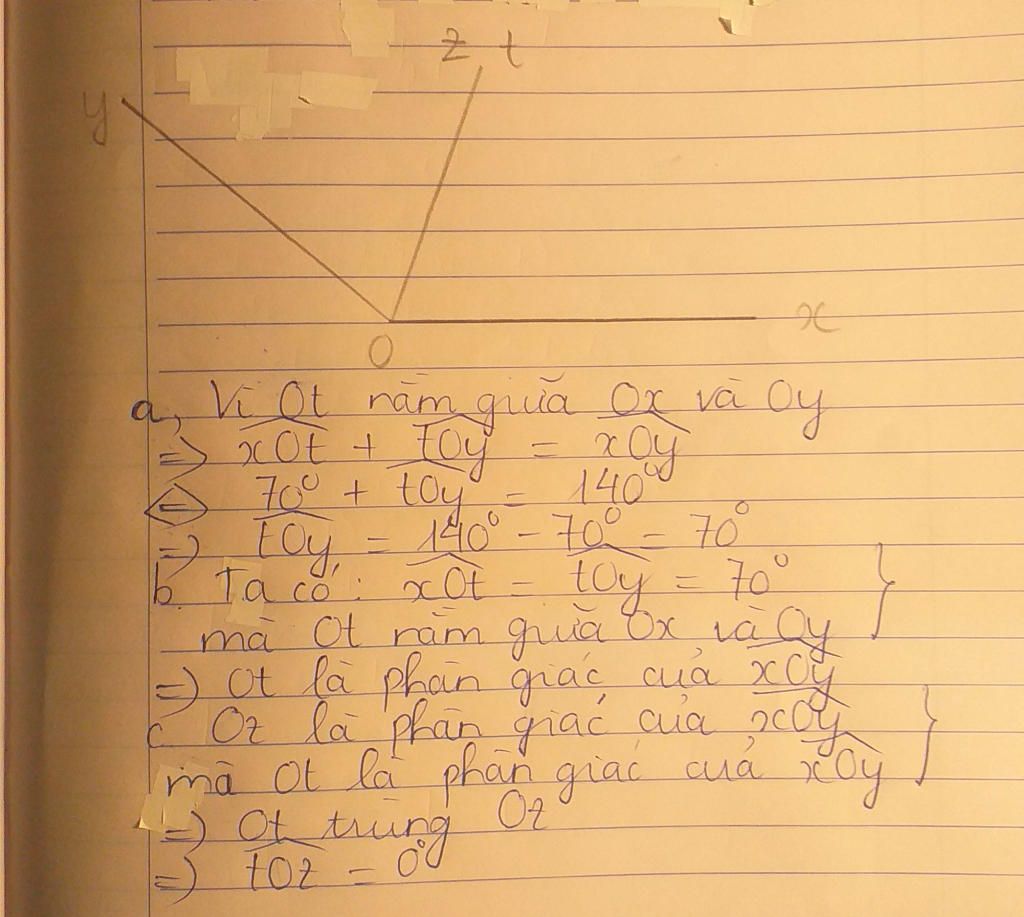 z t
y
x
O
a, Vì Ot nằm giữa Ox và Oy
=> xOt + tOy = xOy
<=> 70° + tOy = 140°
=> tOy = 140° - 70° = 70°
b. Ta có: xOt = tOy = 70°
mà Ot nằm giữa Ox và Oy
=> Ot là phân giác của xOy
c. Oz là phân giác của xOy
mà Ot là phân giác của xOy
=> Ot trùng Oz
=> tOz = 0°